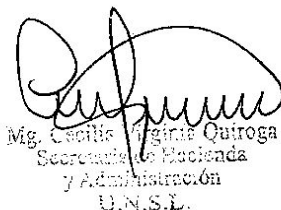 Mg. Cecilia Virginia Quiroga
Secretaria de Hacienda
y Administración
U.N.S.L.